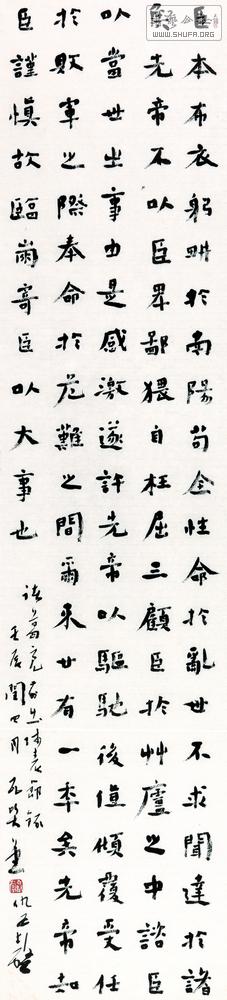 臣本布衣躬畊於南陽苟全性命於亂世不求聞達於諸
矦先帝不以臣卑鄙猥自枉屈三顧臣於艸廬之中諮臣
以當世之事由是感激遂許先帝以驅馳後值傾覆受任
於敗軍之際奉命於危難之間爾來廿有一秊矣先帝知
臣謹慎故臨崩寄臣以大事也
諸葛亮前出師表節錄
壬辰閏四月
WWW.SHUFA.ORG